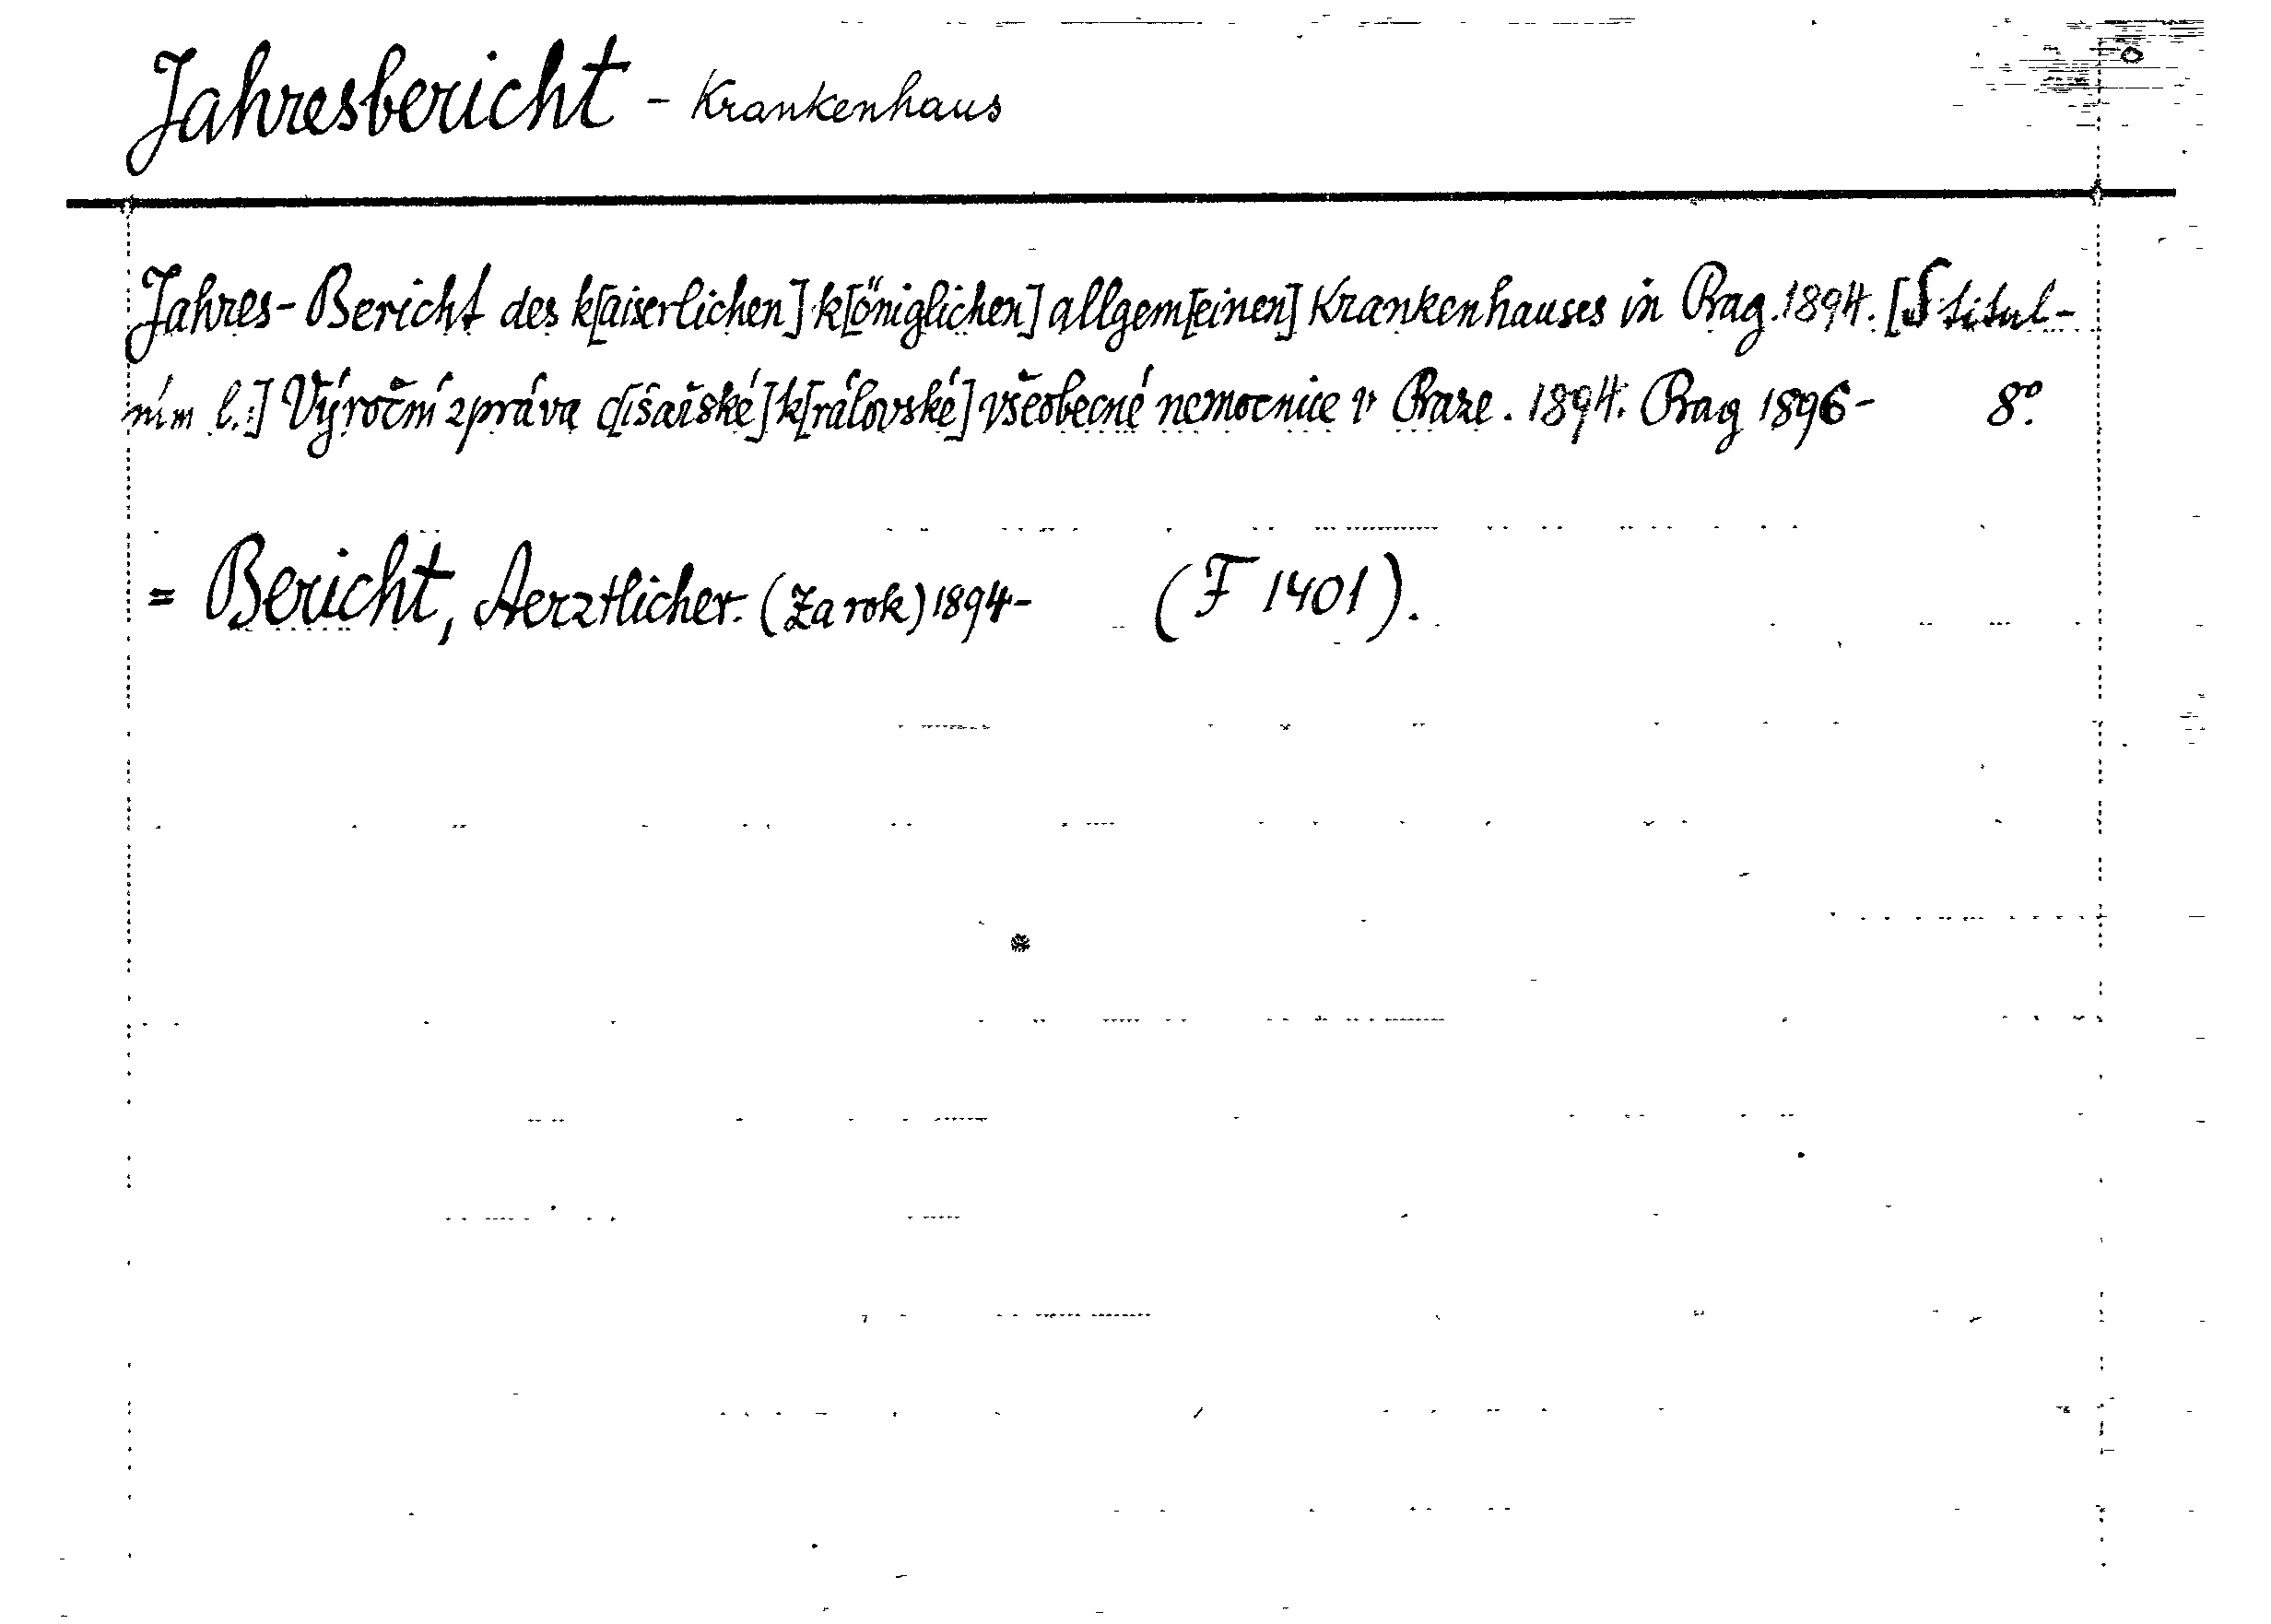 Jahresbericht - Krankenhaus
Jahres-Bericht des k[aiserlichen] k[öniglichen] allgem[einen] Krankenhauses in Prag. 1894. [S titul-
ním l.:] Výroční zpráva c[ísařské] k[rálovské] všeobecné nemocnice v Praze. 1894. Prag 1896- 8º.
= Bericht, Aerztlicher. (Za rok) 1894- (F 1401).